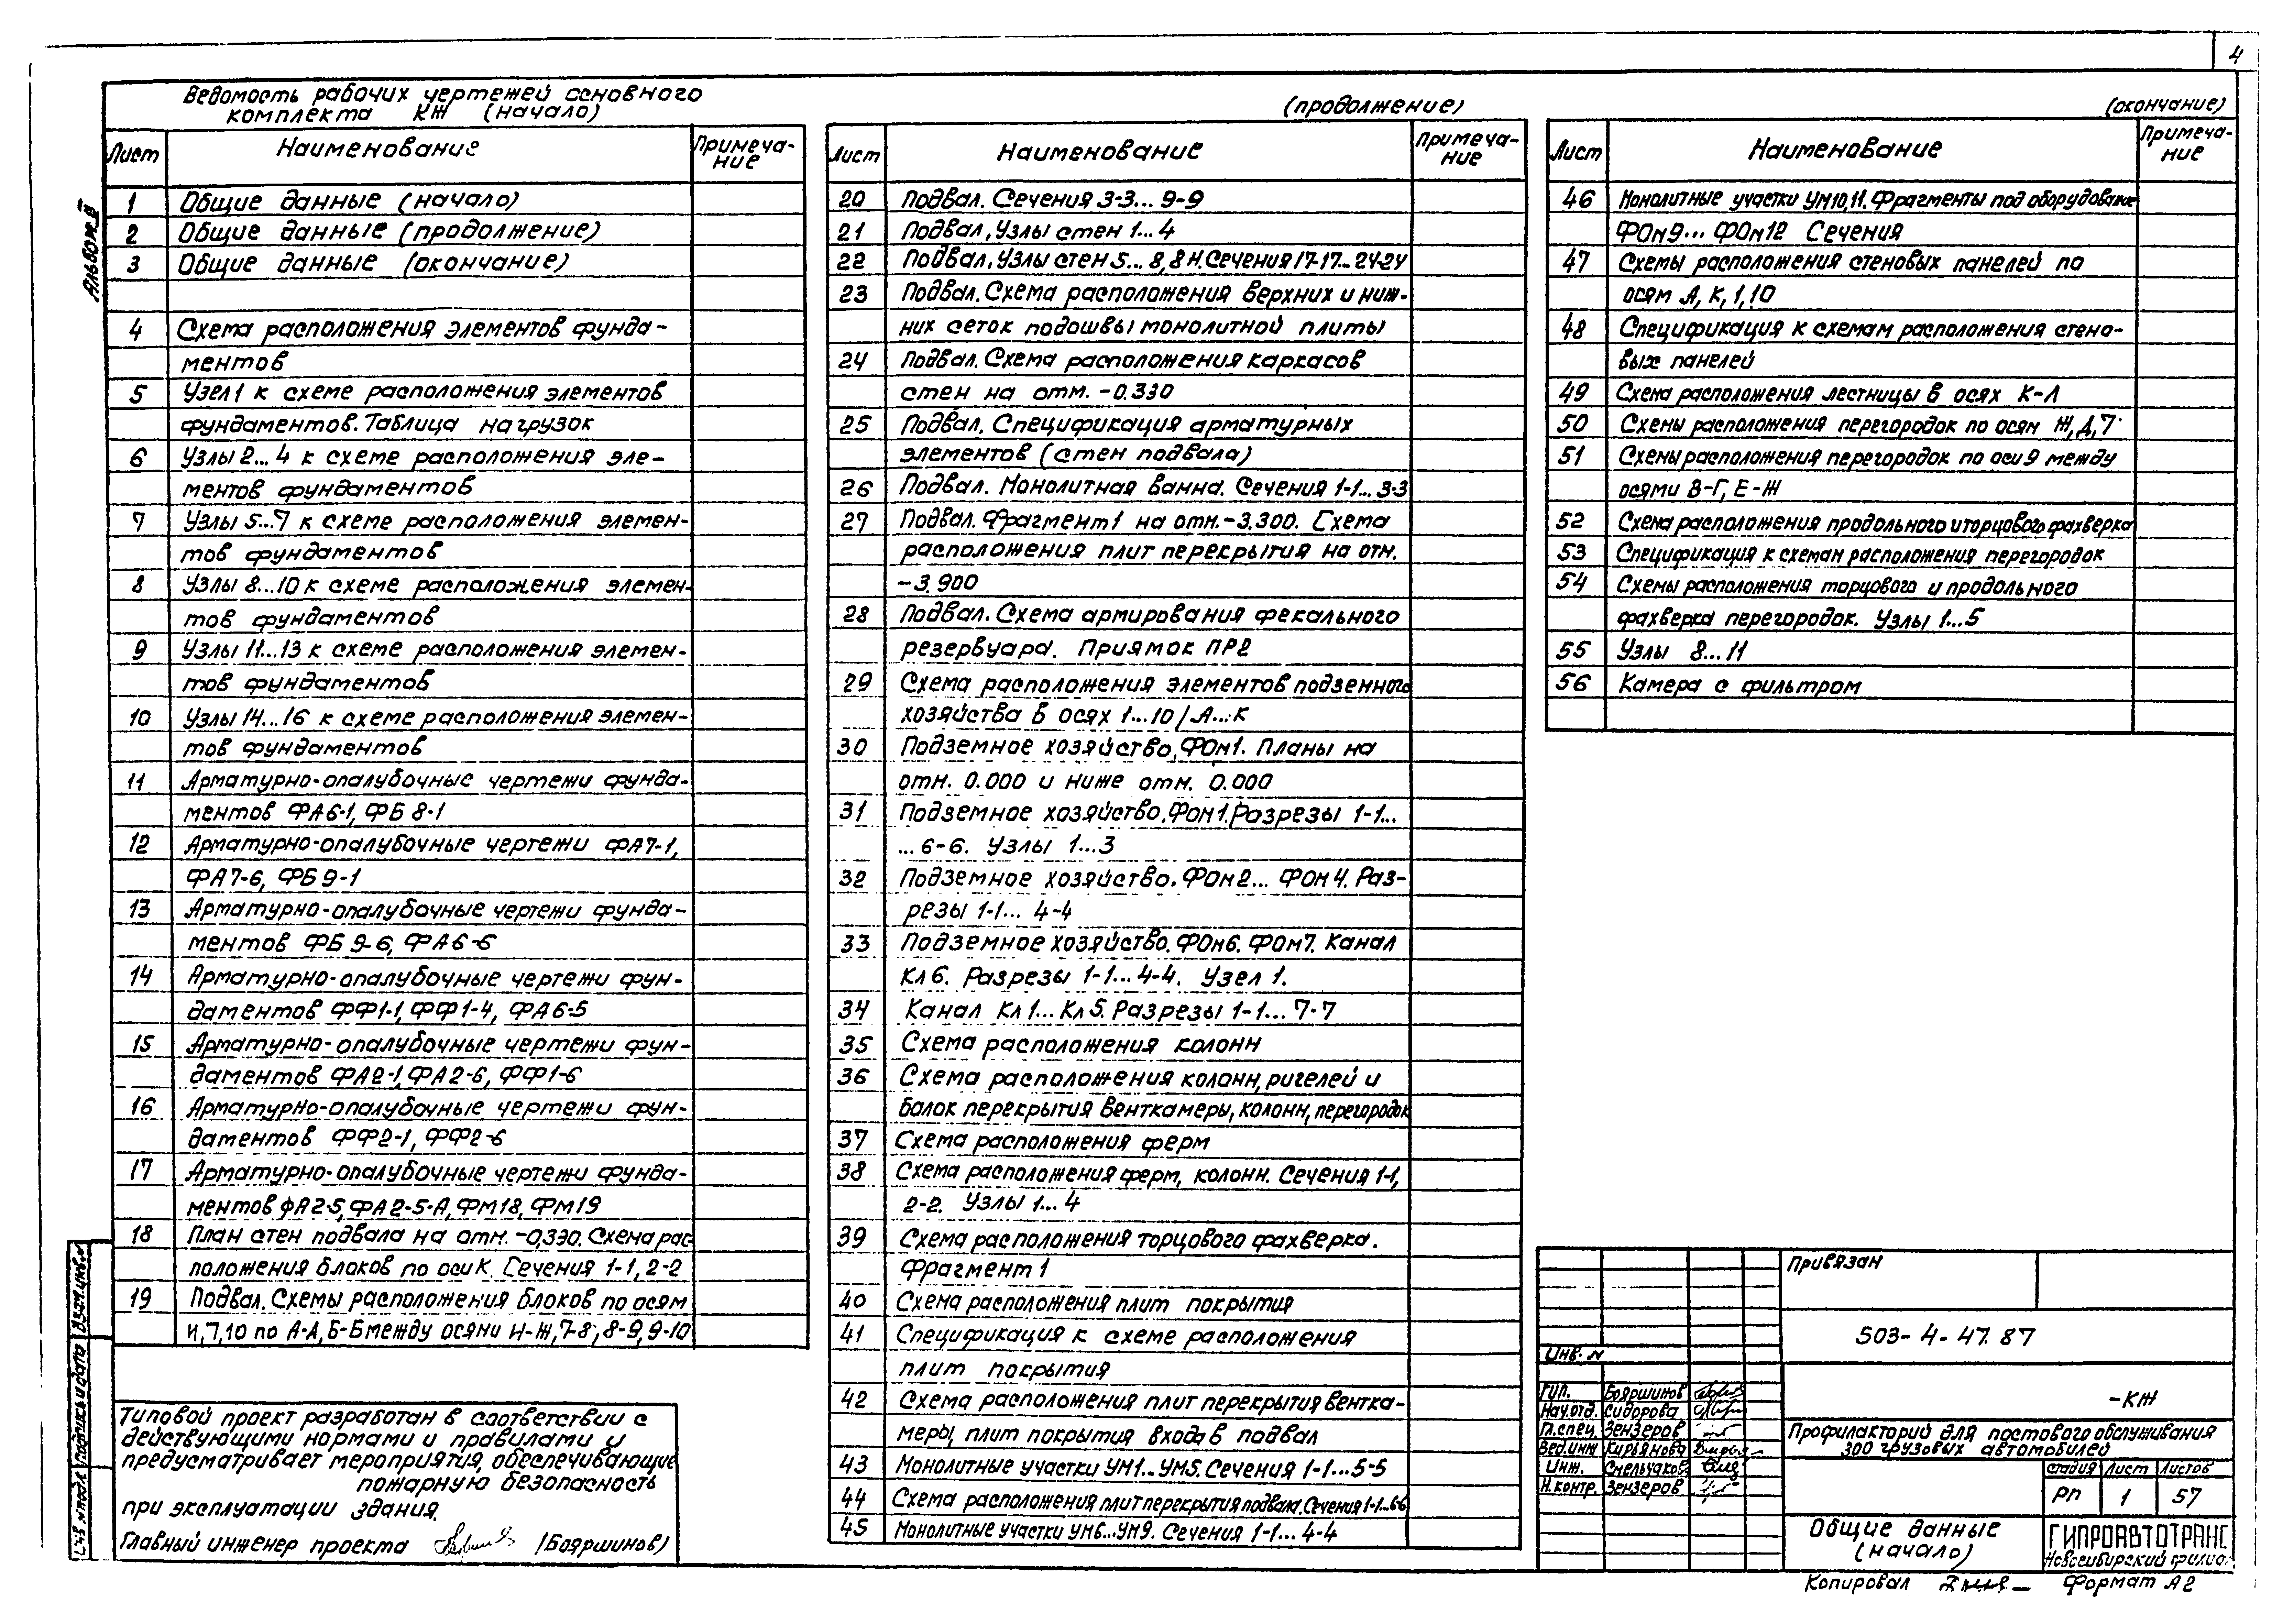 4
Альбом II
Ведомость рабочих чертежей основного
комплекта КЖ (начало)
Лист Наименование Примеча-
ние
1 Общие данные (начало)
2 Общие данные (продолжение)
3 Общие данные (окончание)
4 Схема расположения элементов фунда-
ментов
5 Узел 1 к схеме расположения элементов
фундаментов. Таблица нагрузок
6 Узлы 2...4 к схеме расположения эле-
ментов фундаментов
7 Узлы 5...7 к схеме расположения элемен-
тов фундаментов
8 Узлы 8...10 к схеме расположения элемен-
тов фундаментов
9 Узлы 11...13 к схеме расположения элемен-
тов фундаментов
10 Узлы 14...16 к схеме расположения элемен-
тов фундаментов
11 Арматурно-опалубочные чертежи фунда-
ментов ФА6-1, ФБ 8-1
12 Арматурно-опалубочные чертежи ФА7-1,
ФА7-6, ФБ9-1
13 Арматурно-опалубочные чертежи фунда-
ментов ФБ 9-6, ФА6-6
14 Арматурно-опалубочные чертежи фун-
даментов ФФ1-1, ФФ1-4, ФА6-5
15 Арматурно-опалубочные чертежи фун-
даментов ФА2-1, ФА2-6, ФФ1-6
16 Арматурно-опалубочные чертежи фун-
даментов ФФ2-1, ФФ2-6
17 Арматурно-опалубочные чертежи фунда-
ментов ФА2-5, ФА2-5-А, ФМ18, ФМ19
18 План стен подвала на отм. -0,330. Схема рас
положения блоков по оси К. Сечения 1-1, 2-2
19 Подвал. Схемы расположения блоков по осям
И,7,10 по А-А, Б-Б между осями И-Ж,7-8; 8-9,9-10
(продолжение)
Лист Наименование Примеча-
ние
20 Подвал. Сечения 3-3... 9-9
21 Подвал, Узлы стен 1...4
22 Подвал, Узлы стен 5...8, 8Н. Сечения 17-17...24-24
23 Подвал. Схема расположения верхних и ниж-
них сеток подошвы монолитной плиты
24 Подвал. Схема расположения каркасов
стен на отм. -0.330
25 Подвал. Спецификация арматурных
элементов (стен подвала)
26 Подвал. Монолитная ванна. Сечения 1-1...3-3
27 Подвал. Фрагмент 1 на отм.-3.300. Схема
расположения плит перекрытия на отм.
-3.900
28 Подвал. Схема армирования фекального
резервуара. Приямок ПР2
29 Схема расположения элементов подземного
хозяйства в осях 1...10/А...К
30 Подземное хозяйство, ФОм1. Планы на
отм. 0.000 и ниже отм. 0.000
31 Подземное хозяйство. Фом1. Разрезы 1-1...
...6-6. Узлы 1...3
32 Подземное хозяйство. ФОм2... ФОм4. Раз-
резы 1-1... 4-4
33 Подземное хозяйство. ФОм6. ФОм7. Канал
Кл6. Разрезы 1-1...4-4. Узел 1.
34 Канал Кл1...Кл5. Разрезы 1-1...7-7
35 Схема расположения колонн
36 Схема расположения колонн, ригелей и
балок перекрытия венткамеры, колонн, перегородок
37 Схема расположения ферм
38 Схема расположения ферм, колонн. Сечения 1-1,
2-2. Узлы 1...4
39 Схема расположения торцового фахверка.
Фрагмент 1
40 Схема расположения плит покрытия
41 Спецификация к схеме расположения
плит покрытия
42 Схема расположения плит перекрытия вентка-
меры, плит покрытия входа в подвал
43 Монолитные участки УМ1..УМ5. Сечения 1-1...5-5
44 Схема расположения плит перекрытия подвала. Сечения 1-1...6-6
45 Монолитные участки УМ6...УМ9. Сечения 1-1...4-4
(окончание)
Лист Наименование Примеча-
ние
46 Монолитные участки УМ10,11. Фрагменты под оборудование
ФОм9... ФОм12 Сечения
47 Схемы расположения стеновых панелей по
осям А, К, 1, 10
48 Спецификация к схемам расположения стено-
вых панелей
49 Схема расположения лестницы в осях К-Л
50 Схемы расположения перегородок по осям Ж, Д, 7
51 Схемы расположения перегородок по оси 9 между
осями В-Г, Е-Ж
52 Схема расположения продольного и торцового фахверка
53 Спецификация к схемам расположения перегородок
54 Схемы расположения торцового и продольного
фахверка перегородок. Узлы 1...5
55 Узлы 8...11
56 Камера с фильтром
Типовой проект разработан в соответствии с
действующими нормами и правилами и
предусматривает мероприятия, обеспечивающие
пожарную безопасность
при эксплуатации здания.
Главный инженер проекта (Бояршинов)
Инв. № подл. Подпись и дата Взам. инв. №
Привязан
Инв. №
503-4-47.87
-КЖ
ГИП. Бояршинов
Нач.отд. Сидорова
Гл.спец. Зензеров
Вед.инж Кирьянова
Инж. Смельчаков
Н.контр. Зензеров
Профилакторий для постового обслуживания
300 грузовых автомобилей
стадия Лист Листов
РП 1 57
Общие данные
(начало)
ГИПРОАВТОТРАНС
Новосибирский филиал
Копировал Формат А2